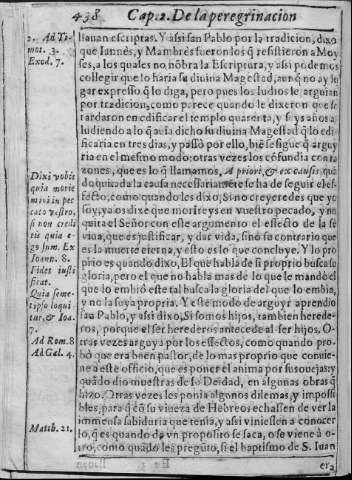 438 Cap. 2. De la peregrinacion
2. Ad Timot. 3.
Exod. 7.
lleuan escriptas. Y assi san Pablo por la tradicion, dixo
que Iannes, y Mambres fueron los q̃ resistieron a Moy
ses, a los quales no nõbra la Escriptura, y assi podemos
collegir que lo haria su diuina Magestad, aunq̃ no ay lu
gar expresso q̃ lo diga, pero pues los Iudios le arguian
por tradicion, como parece quando le dixeron que se
tardaron en edificar el templo quarenta, y seys años a-
ludiendo a lo q̃ auia dicho su diuina Magestad q̃ lo edi-
ficaria en tres dias, y passò por ello, biẽ se sigue q̃ arguy
ria en el mesmo modo: otras vezes los cõfundia con ra
zones, que es lo q̃ llamamos, A priori, & ex causis, quã
do quitada la causa necessariamẽte se ha de seguir el ef-
fecto, como quando les dixo, Si no creyeredes que yo
soy, ya os dixe que morireys en vuestro pecado, y no
quita el Señor con este argumento el effecto de la fè
viua, que es justificar, y dar vida, sino su contrario que
es la muerte eterna, y esto es lo que concluye. Y lo pro
prio es quando dixo, El que habla de si proprio busca su
gloria, pero el que no habla mas de lo que le mandò el
que lo embiò este tal busca la gloria del que lo embia,
y no la suya propria. Y este modo de arguyr aprendio
san Pablo, y assi dixo, Si somos hijos, tambien herede-
ros, porque el ser herederos antecede al ser hijos. O-
tras vezes arguya por los effectos, como quando pro-
bò que era buen pastor, de lo mas proprio que conuie-
ne a este officio, que es poner el anima por sus ouejas: y
quãdo dio muestras de su Deidad, en algunas obras q̃
hizo. Otras vezes les ponia algunos dilemas, y impossi
bles, para q̃ cõ su viueza de Hebreos echassen de ver la
immensa sabiduria que tenia, y assi viniessen a conocer
lo, q̃ es quando de vn proposito se saca, o se viene a o-
tro, como quãdo les pregũtò, si el baptismo de S. Iuan
era
Dixi vobis
quia morie
mini in pec
cato vestro,
si non credi
tis quia e-
go sum. Ex
Ioann. 8.
Fides iusti
ficat.
Quia seme-
tipso loqui
tur, & Ioã
7.
Ad Rom. 8
Ad Gal. 4.
Matth. 21.